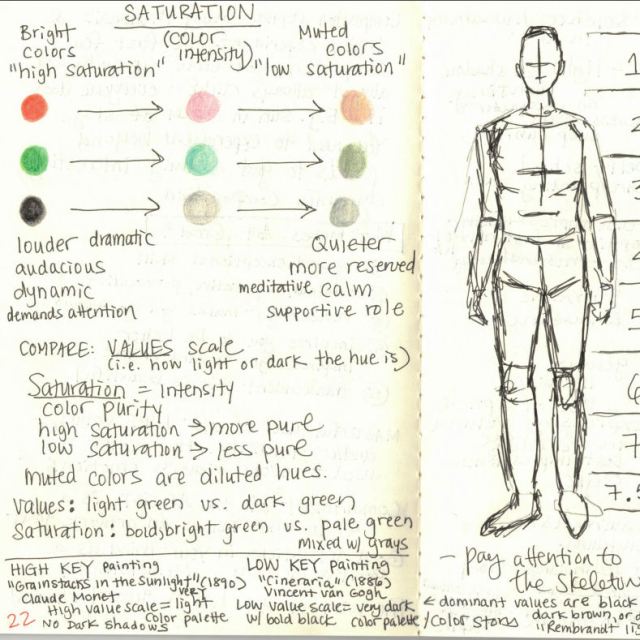 SATURATION
(color intensity)
Bright colors
"high saturation"
Muted colors
"low saturation"
louder dramatic
audacious
dynamic
demands attention
Quieter
more reserved
meditative calm
supportive role
COMPARE: VALUES scale
(i.e. how light or dark the hue is)
Saturation = intensity
color purity
high saturation → more pure
low saturation → less pure
muted colors are diluted hues.
values: light green vs. dark green
Saturation: bold, bright green vs. pale green
mixed w/ grays
HIGH KEY painting
"Grainstacks in the Sunlight" (1890)
Claude Monet
High value scale = very light color palette
No Dark shadows
22
LOW KEY painting
"Cineraria" (1886)
Vincent van Gogh
Low value scale = very dark color palette/color story
w/ bold black
1
2
4
5
6
7
7.5
- pay attention to
the skeleton
← dominant values are black
dark brown, or
"Rembrandt